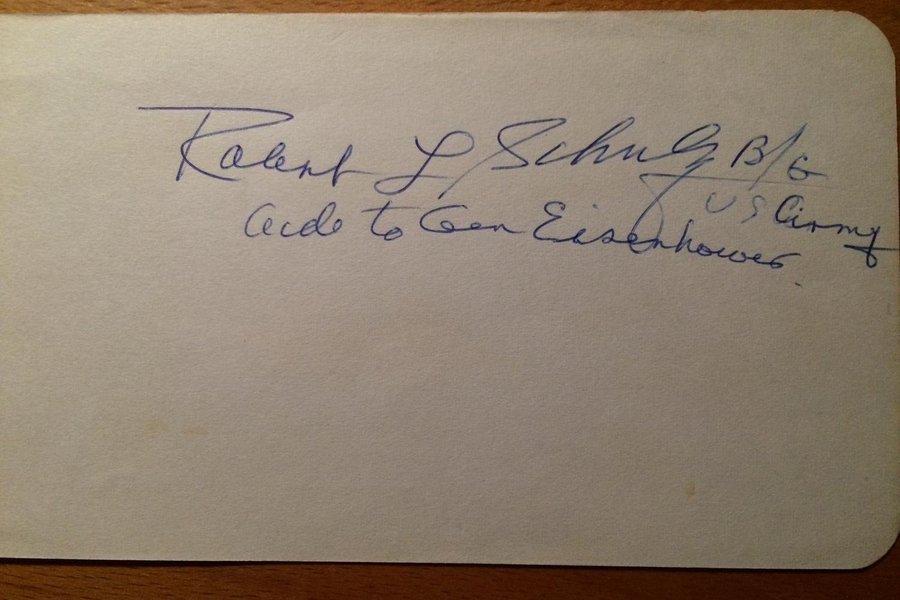 Robert L Schulz B/G
US Army
Aide to Gen Eisenhower.